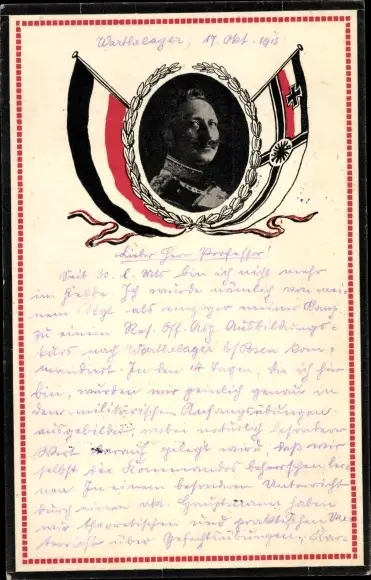 Warthelager, 17. Okt. 1915
Lieber Herr Professor!
Seit 30. l. Mts bin ich nicht mehr
im Felde. Ich wurde nämlich von mei-
nem Regt. als einziger meiner Komp.
zu einem Res. Off. Asp. Ausbildungs-
kurs nach Warthelager b/Posen kom-
mandiert. In den 14 Tagen, die ich hier
bin, wurden wir ziemlich genau in
den militärischen Anfangsübungen
ausgebildet, wobei natürlich besonderer
Wert darauf gelegt wird, daß wir
selbst die Kommandos beherrschen ler-
nen. In einem besonderen Unterricht
durch einen akt. Hauptmann haben
wir theoretischen und praktischen Un-
terricht über Gefechtsübungen,